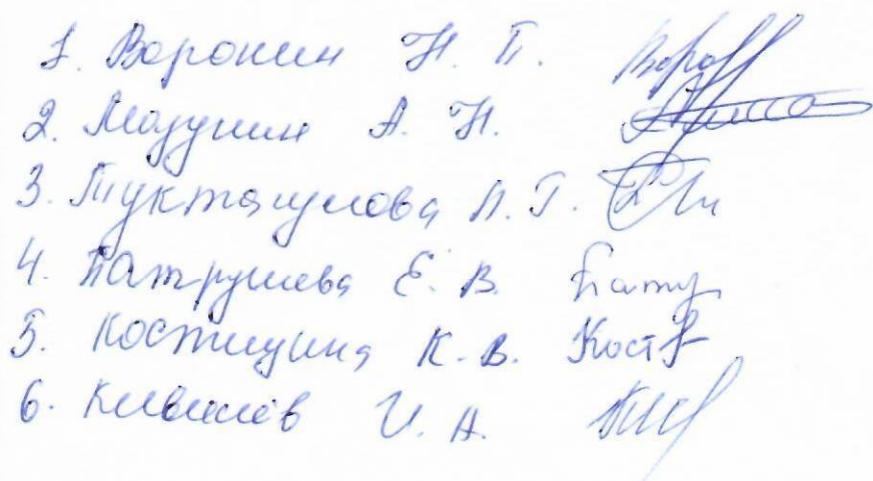 1. Воронин Н. П. Ворон
2. Мазунин А. Н.
3. Туктагулова Л. Г.
4. Патрушева Е. В. Патр
5. Костицина К. В. Кост
6. Кивилёв И. А.